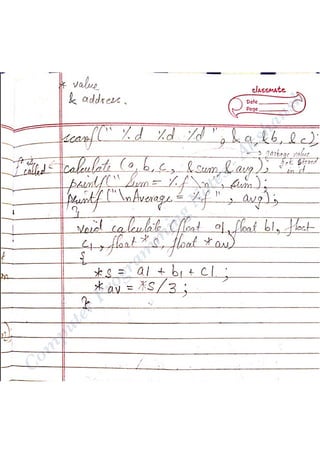 * value
& address.
classmate
Date
Page
scanf(" %d %d %d ", &a, &b, &c);
garbage value
called calculate (a, b, c, &sum, &avg);
printf(" Sum = %f \n", sum);
printf("\nAverage = %f ", avg);
}
void calculate (float a1, float b1, float
c1, float *s, float *av)
{
*s = a1 + b1 + c1 ;
*av = *s/3 ;
}